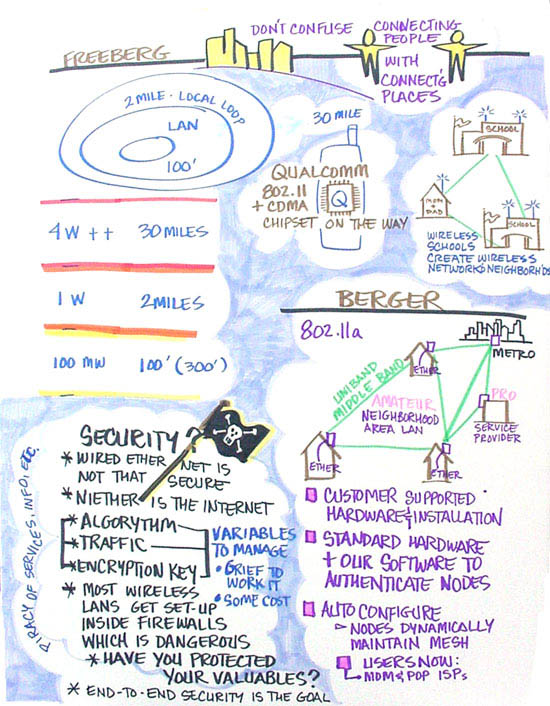 FREEBERG
DON'T CONFUSE
CONNECTING
PEOPLE
WITH
CONNECT'G
PLACES
2 MILE · LOCAL LOOP
LAN
100'
30 MILE
QUALCOMM
802.11
+ CDMA
Q
CHIPSET ON THE WAY
SCHOOL
MOM
DAD
SCHOOL
WIRELESS
SCHOOLS
CREATE WIRELESS
NETWORKS NEIGHBORH'DS
4 W ++ 30 MILES
1 W 2 MILES
100 MW 100' (300')
BERGER
802.11a
METRO
ETHER
UNIBAND
MIDDLE BAND
AMATEUR
NEIGHBORHOOD
AREA LAN
PRO
SERVICE
PROVIDER
ETHER
ETHER
CUSTOMER SUPPORTED
HARDWARE & INSTALLATION
STANDARD HARDWARE
+ OUR SOFTWARE TO
AUTHENTICATE NODES
AUTO CONFIGURE
NODES DYNAMICALLY
MAINTAIN MESH
USERS NOW:
MOM & POP ISPs
SECURITY?
* WIRED ETHER NET IS
NOT THAT SECURE
* NIETHER IS THE INTERNET
* ALGORYTHM
* TRAFFIC
* ENCRYPTION KEY
VARIABLES
TO MANAGE
• GRIEF TO
WORK IT
• SOME COST
* MOST WIRELESS
LANS GET SET-UP
INSIDE FIREWALLS
WHICH IS DANGEROUS
* HAVE YOU PROTECTED
YOUR VALUABLES?
* END-TO-END SECURITY IS THE GOAL
PIRACY OF SERVICES, INFO, ETC.